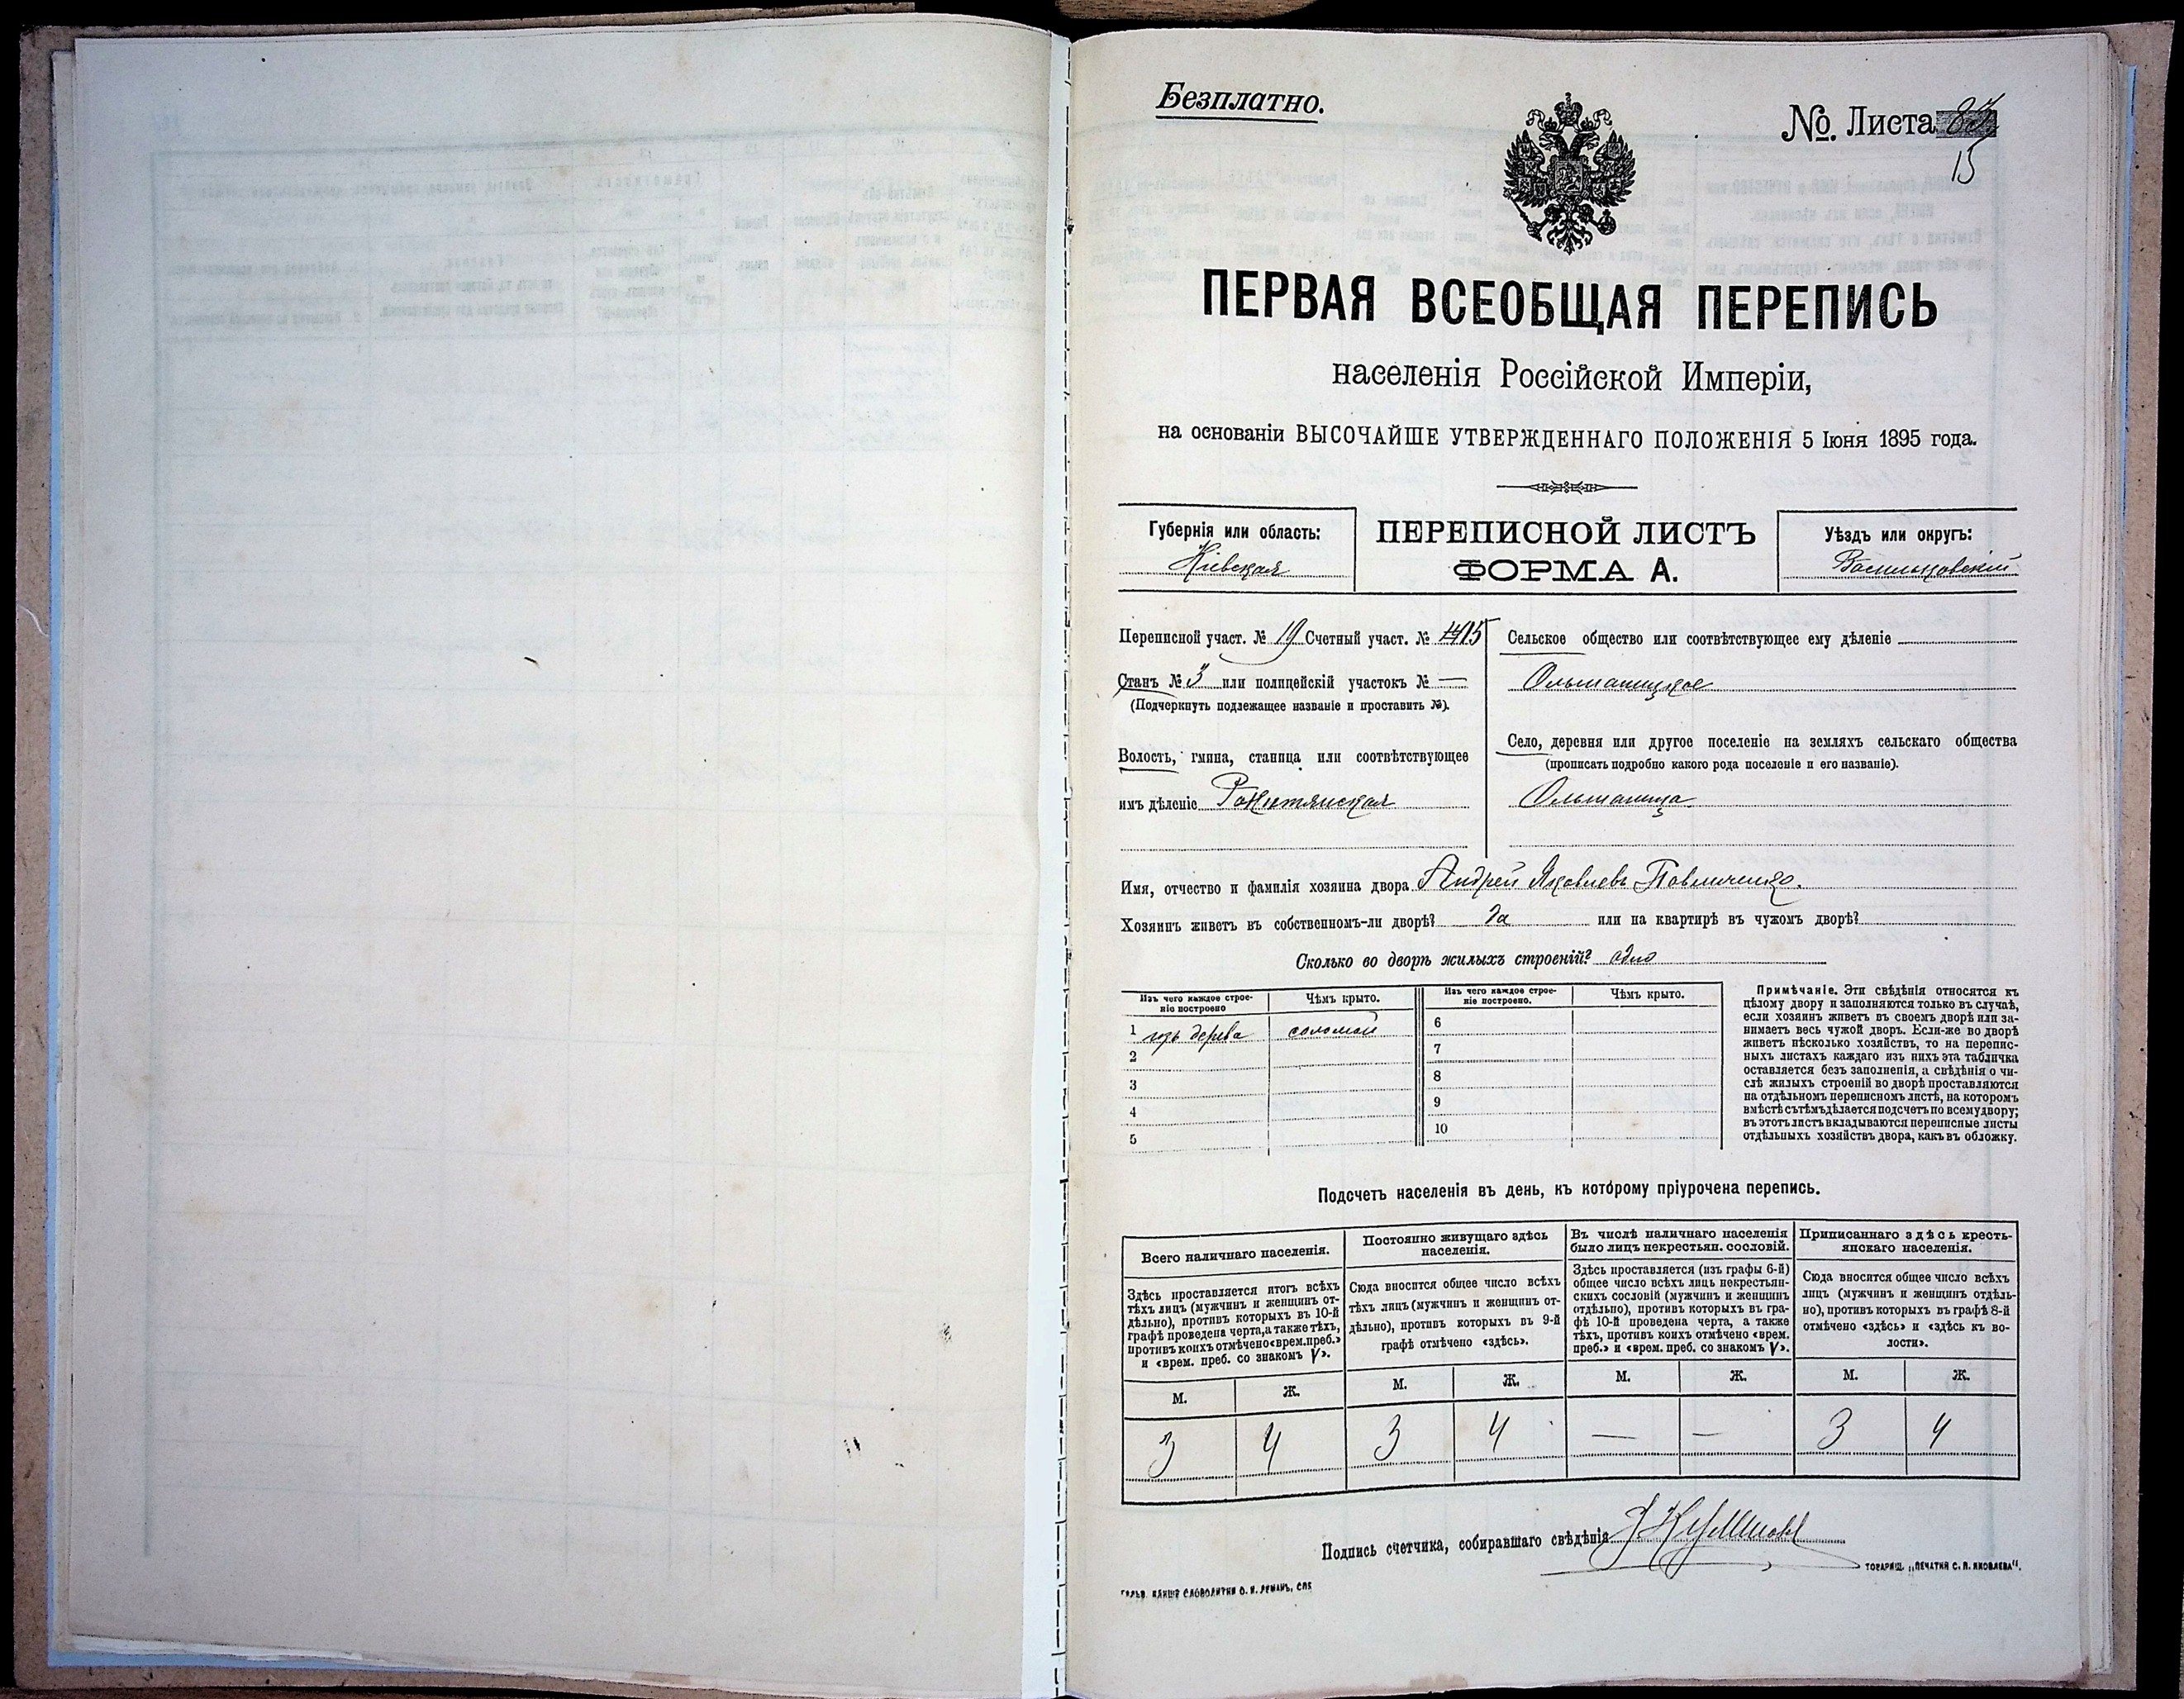 Безплатно.
№. Листа
15
ПЕРВАЯ ВСЕОБЩАЯ ПЕРЕПИСЬ
населенія Россійской Имперіи,
на основаніи ВЫСОЧАЙШЕ УТВЕРЖДЕННАГО ПОЛОЖЕНІЯ 5 Іюня 1895 года.
Губернія или область:
Кіевская
ПЕРЕПИСНОЙ ЛИСТЪ
ФОРМА А.
Уѣздъ или округъ:
Васильковскій
Переписной участ. № 19 Счетный участ. № 15
Станъ № 3 или полицейскій участокъ № —
(Подчеркнуть подлежащее названіе и проставить №).
Волость, гмина, станица или соотвѣтствующее
имъ дѣленіе Рокитянская
Сельское общество или соотвѣтствующее ему дѣленіе
Ольшаницкое
Село, деревня или другое поселеніе на земляхъ сельскаго общества
(прописать подробно какого рода поселеніе и его названіе).
Ольшаница
Имя, отчество и фамилія хозяина двора Андрей Яковлевъ Павличенко.
Хозяинъ живетъ въ собственномъ-ли дворѣ? да или на квартирѣ въ чужомъ дворѣ?
Сколько во дворѣ жилыхъ строеній? одно
Изъ чего каждое строе-
ніе построено
Чѣмъ крыто.
Изъ чего каждое строе-
ніе построено.
Чѣмъ крыто.
1 изъ дерева соломой
2
3
4
5
6
7
8
9
10
Примѣчаніе. Эти свѣдѣнія относятся къ
цѣлому двору и заполняются только въ случаѣ,
если хозяинъ живетъ въ своемъ дворѣ или за-
нимаетъ весь чужой дворъ. Если-же во дворѣ
живетъ нѣсколько хозяйствъ, то на перепис-
ныхъ листахъ каждаго изъ нихъ эта табличка
оставляется безъ заполненія, а свѣдѣнія о чи-
слѣ жилыхъ строеній во дворѣ проставляются
на отдѣльномъ переписномъ листѣ, на которомъ
вмѣстѣ съ тѣмъ дѣлается подсчетъ по всему двору;
въ этотъ листъ вкладываются переписные листы
отдѣльныхъ хозяйствъ двора, какъ въ обложку.
Подсчетъ населенія въ день, къ которому пріурочена перепись.
Всего наличнаго населенія.
Здѣсь проставляется итогъ всѣхъ
тѣхъ лицъ (мужчинъ и женщинъ от-
дѣльно), противъ которыхъ въ 10-й
графѣ проведена черта, а также тѣхъ,
противъ коихъ отмѣчено «врем. преб.»
и «врем. преб. со знакомъ V».
Постоянно живущаго здѣсь
населенія.
Сюда вносится общее число всѣхъ
тѣхъ лицъ (мужчинъ и женщинъ от-
дѣльно), противъ которыхъ въ 9-й
графѣ отмѣчено «здѣсь».
Въ числѣ наличнаго населенія
было лицъ некрестьян. сословій.
Здѣсь проставляется (изъ графы 6-й)
общее число всѣхъ лицъ некрестьян-
скихъ сословій (мужчинъ и женщинъ
отдѣльно), противъ которыхъ въ гра-
фѣ 10-й проведена черта, а также
тѣхъ, противъ коихъ отмѣчено «врем.
преб.» и «врем. преб. со знакомъ V».
Приписаннаго здѣсь кресть-
янскаго населенія.
Сюда вносится общее число всѣхъ
лицъ (мужчинъ и женщинъ отдѣль-
но), противъ которыхъ въ графѣ 8-й
отмѣчено «здѣсь» и «здѣсь къ во-
лости».
М. Ж. М. Ж. М. Ж. М. Ж.
3 4 3 4 — — 3 4
Подпись счетчика, собиравшаго свѣдѣнія
ТОВАРИЩ. „ПЕЧАТНЯ С. П. ЯКОВЛЕВА".
ГАЛЬВ. КЛИШЕ СЛОВОЛИТНИ О. И. ЛЕМАНЪ, СПБ